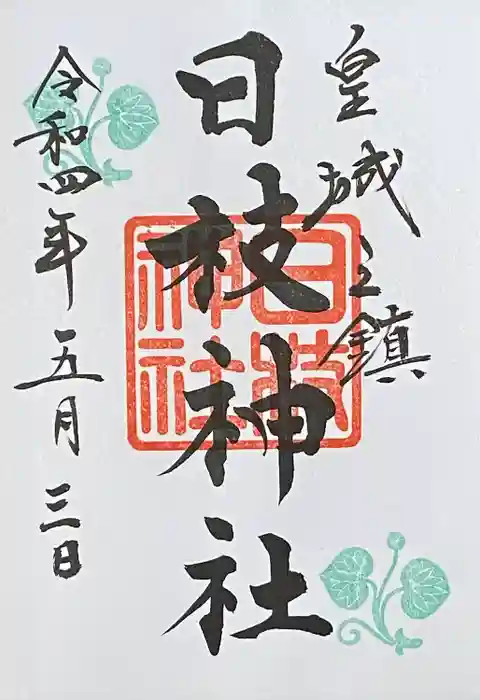 皇城之鎮
日枝神社
日枝神社
令和四年五月三日